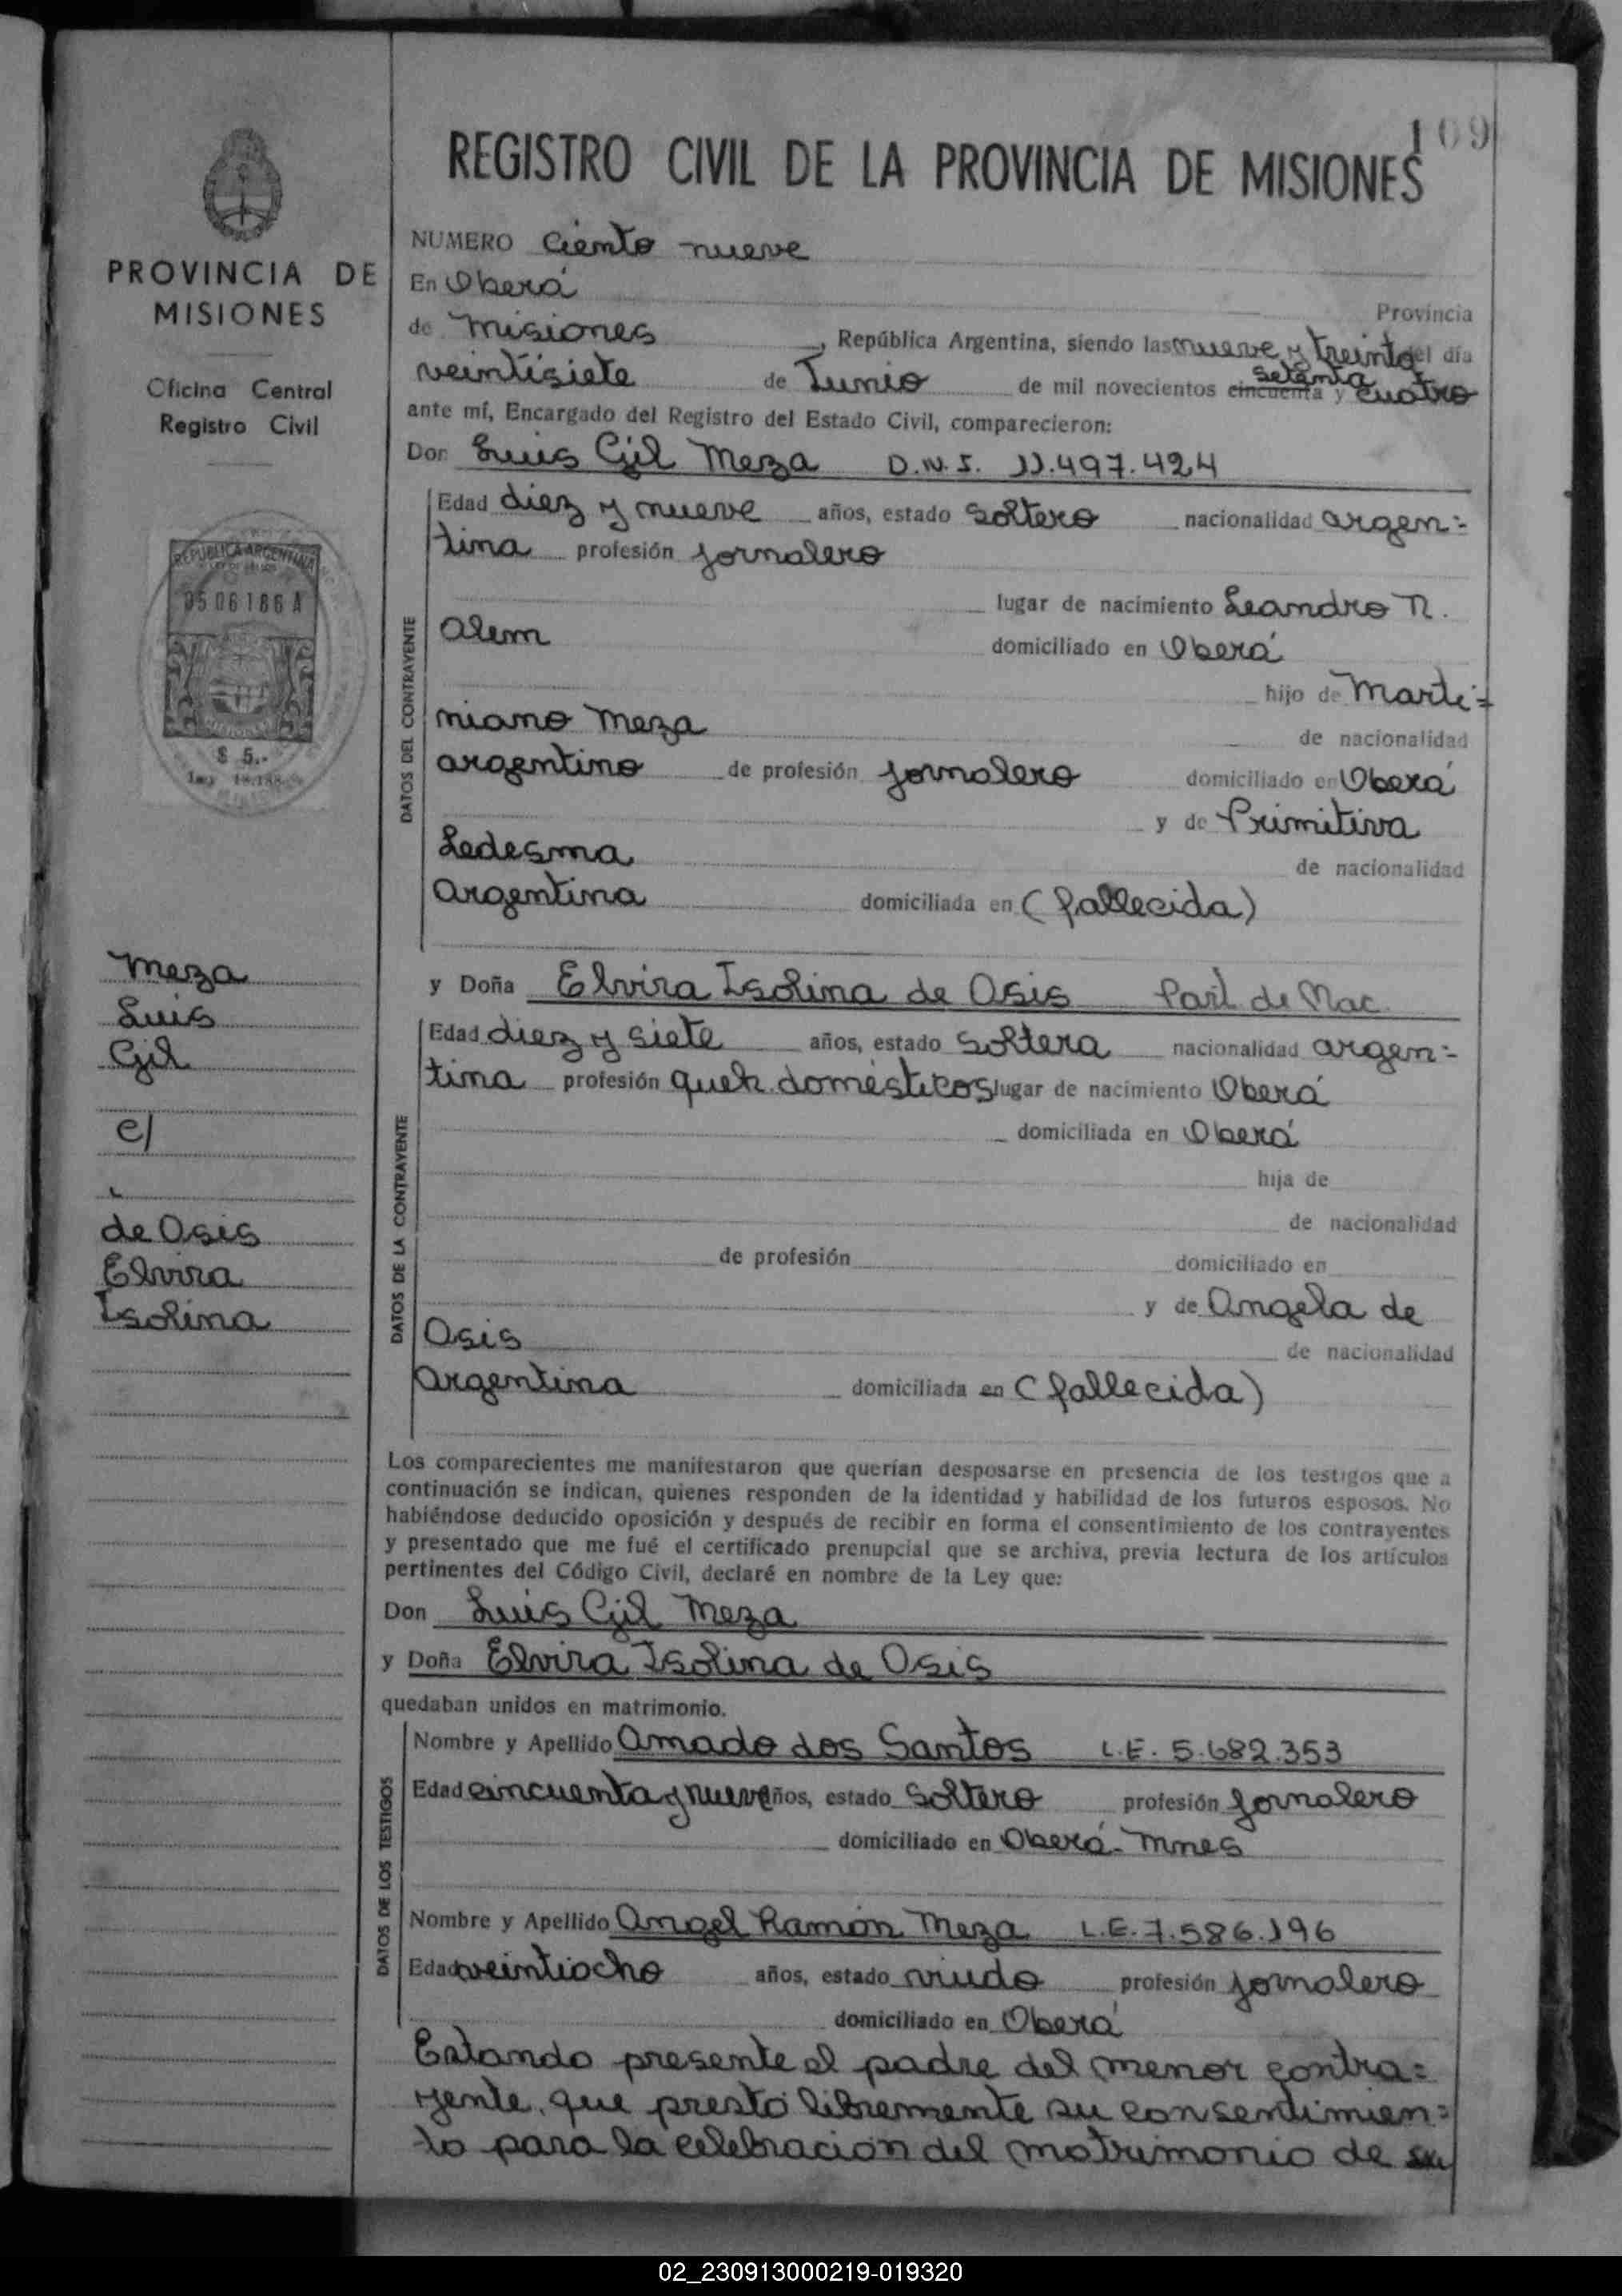 109
REGISTRO CIVIL DE LA PROVINCIA DE MISIONES
PROVINCIA DE
MISIONES
Oficina Central
Registro Civil
REPUBLICA ARGENTINA
0506186 A
$ 5.-
Ley 18.188
Meza
Luis
Gil
c/
de Osis
Elvira
Isolina
NUMERO Ciento nueve
En Oberá
Provincia
de Misiones, República Argentina, siendo las nueve y treinta del día
veintisiete de Junio de mil novecientos cincuenta setenta y cuatro
ante mí, Encargado del Registro del Estado Civil, comparecieron:
Don Luis Gil Meza D.N.I. 11.497.424
DATOS DEL CONTRAYENTE
Edad diez y nueve años, estado soltero nacionalidad argen=
tina profesión jornalero
lugar de nacimiento Leandro N.
Alem domiciliado en Oberá
hijo de Marti=
niano Meza de nacionalidad
argentino de profesión jornalero domiciliado en Oberá
y de Primitiva
Ledesma de nacionalidad
Argentina domiciliada en (fallecida)
y Doña Elvira Isolina de Osis Part de Nac.
DATOS DE LA CONTRAYENTE
Edad diez y siete años, estado soltera nacionalidad argen=
tina profesión queh. domésticos lugar de nacimiento Oberá
domiciliada en Oberá
hija de
de nacionalidad
de profesión domiciliado en
y de Angela de
Osis de nacionalidad
Argentina domiciliada en (fallecida)
Los comparecientes me manifestaron que querían desposarse en presencia de los testigos que a
continuación se indican, quienes responden de la identidad y habilidad de los futuros esposos. No
habiéndose deducido oposición y después de recibir en forma el consentimiento de los contrayentes
y presentado que me fué el certificado prenupcial que se archiva, previa lectura de los artículos
pertinentes del Código Civil, declaré en nombre de la Ley que:
Don Luis Gil Meza
y Doña Elvira Isolina de Osis
quedaban unidos en matrimonio.
DATOS DE LOS TESTIGOS
Nombre y Apellido Amado dos Santos L.E. 5.682.353
Edad cincuenta y nueve años, estado soltero profesión jornalero
domiciliado en Oberá - Mnes
Nombre y Apellido Angel Ramón Meza L.E. 7.586.196
Edad veintiocho años, estado viudo profesión jornalero
domiciliado en Oberá
Estando presente el padre del menor contra=
yente, que prestó libremente su consentimien=
to para la celebración del matrimonio de su
02_230913000219-019320